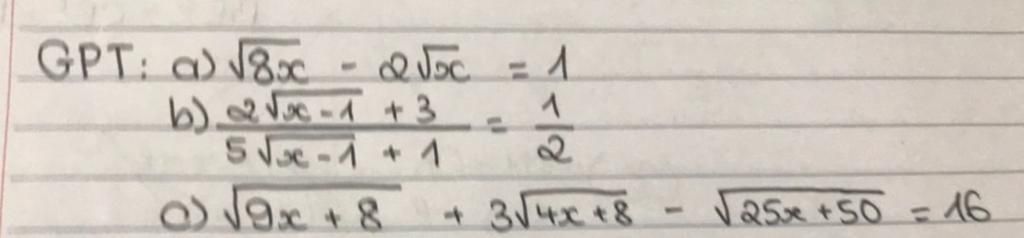 GPT: a) √8x - 2√x = 1
b) (2√x-1 + 3)/(5√x-1 + 1) = 1/2
c) √9x + 8 + 3√4x+8 - √25x+50 = 16